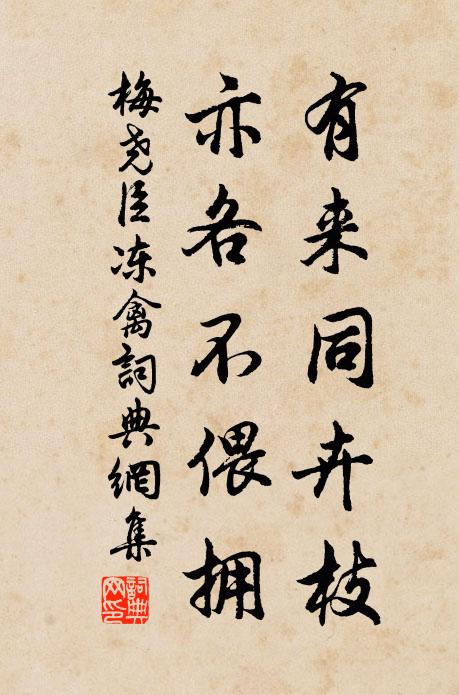 有来同卉枝
亦各不偎拥
梅尧臣冻禽詞典網集
詞典网印